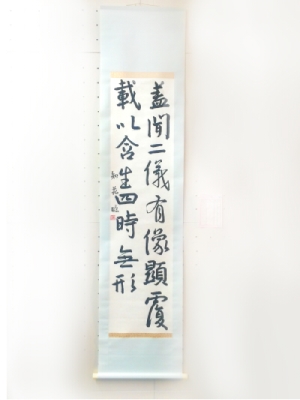 盖聞二儀有像顯覆
載以含生四時無形